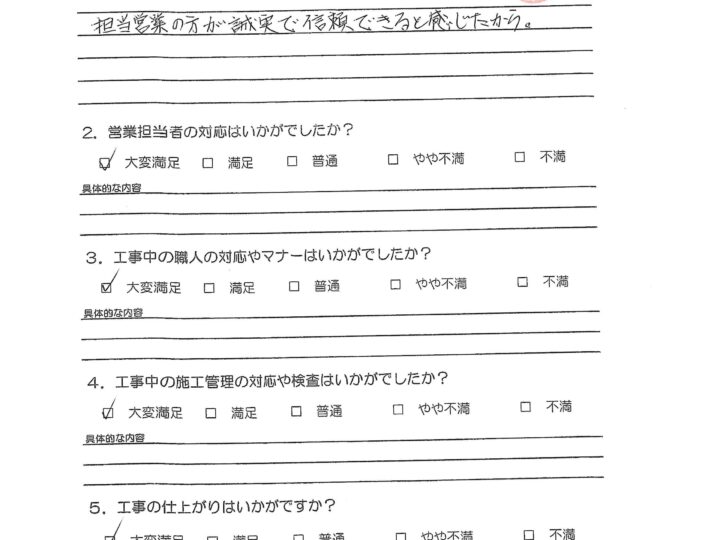 担当営業の方が誠実で信頼できると感じたから。
2. 営業担当者の対応はいかがでしたか?
☑ 大変満足 □ 満足 □ 普通 □ やや不満 □ 不満
具体的な内容
3. 工事中の職人の対応やマナーはいかがでしたか?
☑ 大変満足 □ 満足 □ 普通 □ やや不満 □ 不満
具体的な内容
4. 工事中の施工管理の対応や検査はいかがでしたか?
☑ 大変満足 □ 満足 □ 普通 □ やや不満 □ 不満
具体的な内容
5. 工事の仕上がりはいかがですか?
☑ 大変満足 □ 満足 □ 普通 □ やや不満 □ 不満